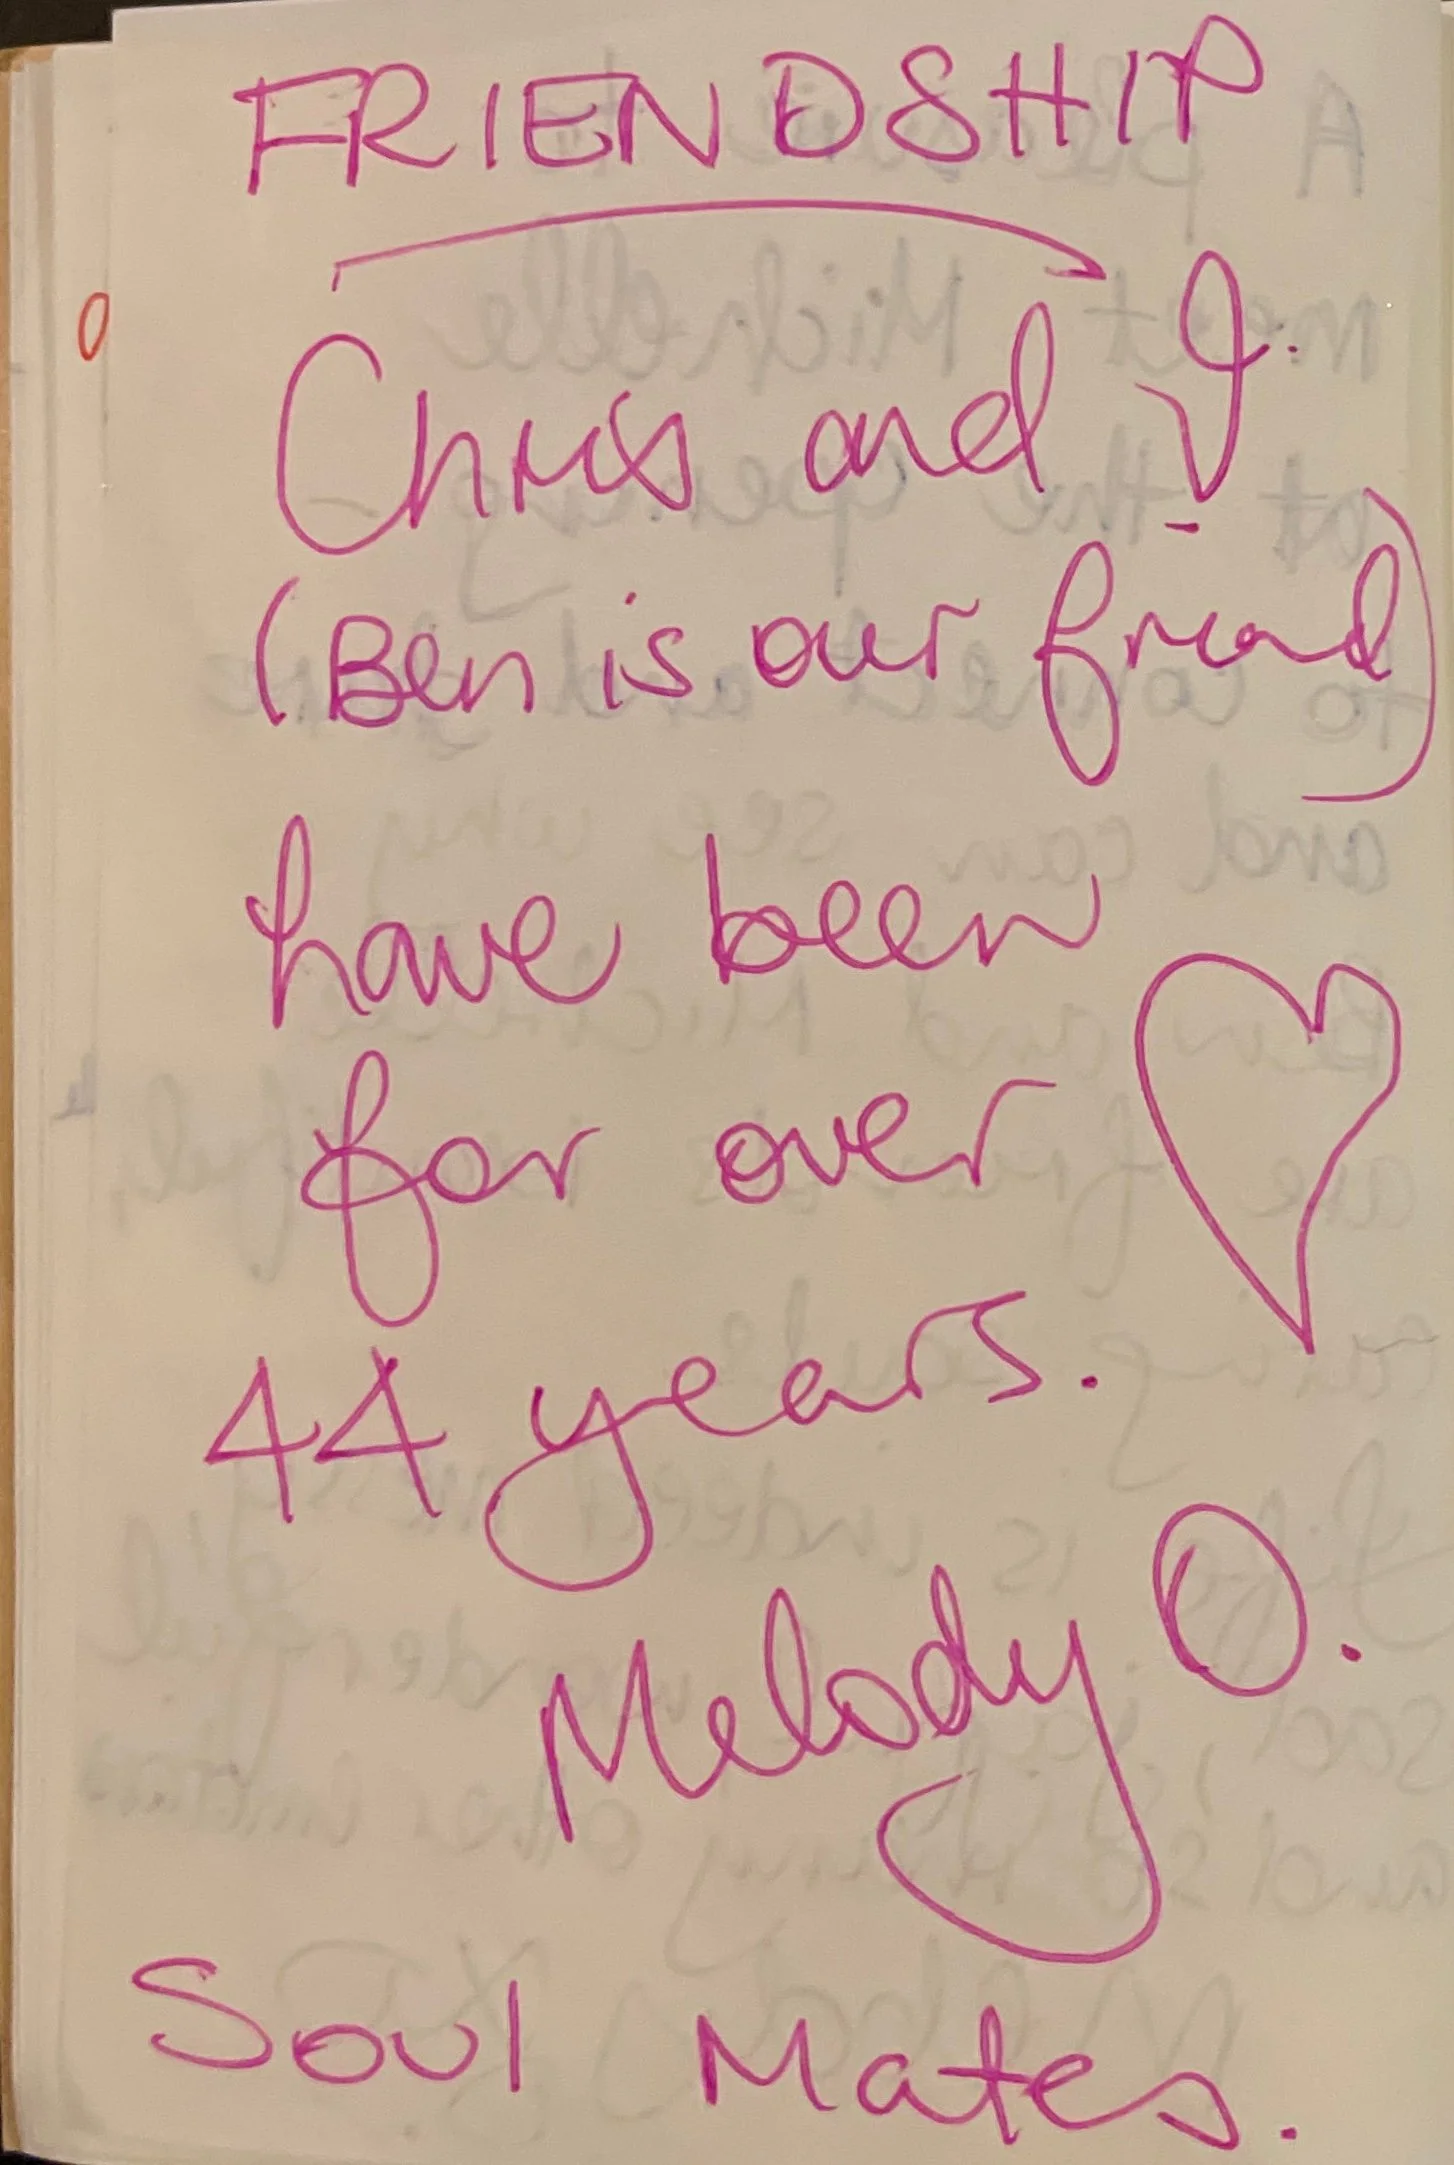 FRIENDSHIP
Chris and I.
(Ben is our friend)
have been
for over
44 years.
Melody O.
Soul Mates.